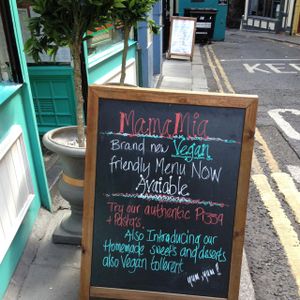 MamaMia
Brand new Vegan
friendly Menu NOW
Avaiable
Try our authentic Pizza
+ Pasta's
Also Introducing our
Homemade sweets and desserts
also Vegan tollerent
yum, yum!
KEE